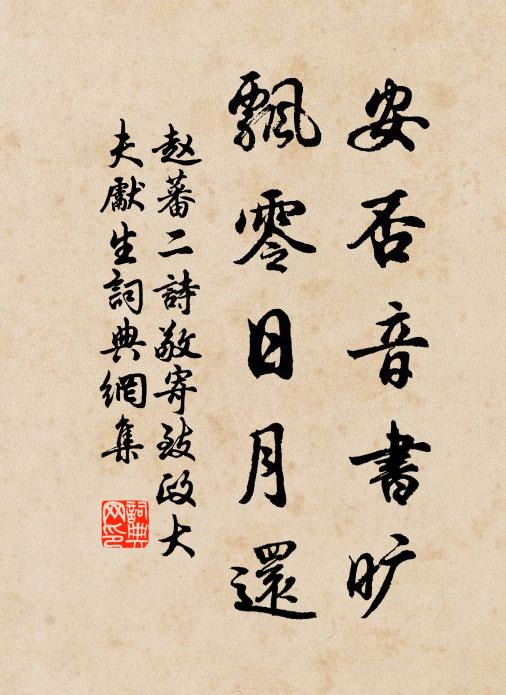 安否音書旷
飄零日月還
赵蕃二詩敬寄致政大
夫獻生詞典網集
詞典网印